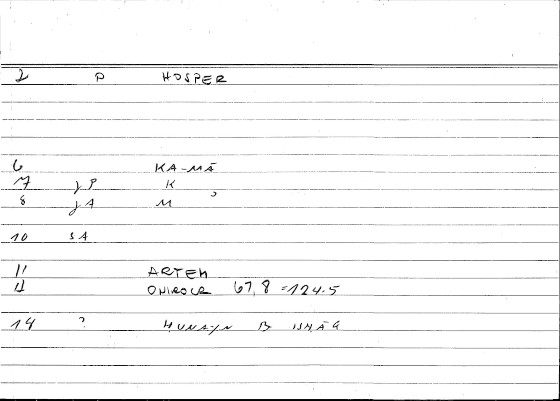 2 P HOSPER
6 KA-MĀ
7 γP K
8 γA M ?
10 SA
11 ARTEM
12 ONIROCR 67,8 = 124.5
14 ? ḤUNAYN B ISḤĀQ